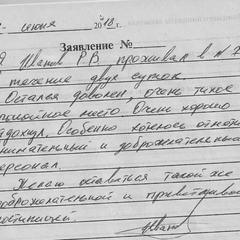 июня 2018 г.
Заявление №
Я Иванов Р.В. проживал в
в течение двух суток.
Остался доволен, очень тихое
спокойное место. Очень хорошо
отдохнул. Особенно хотелось отмети
внимательный и доброжелательный
персонал.
Желаю оставаться такой же
доброжелательной и приветливой
гостиницей.
Иванов